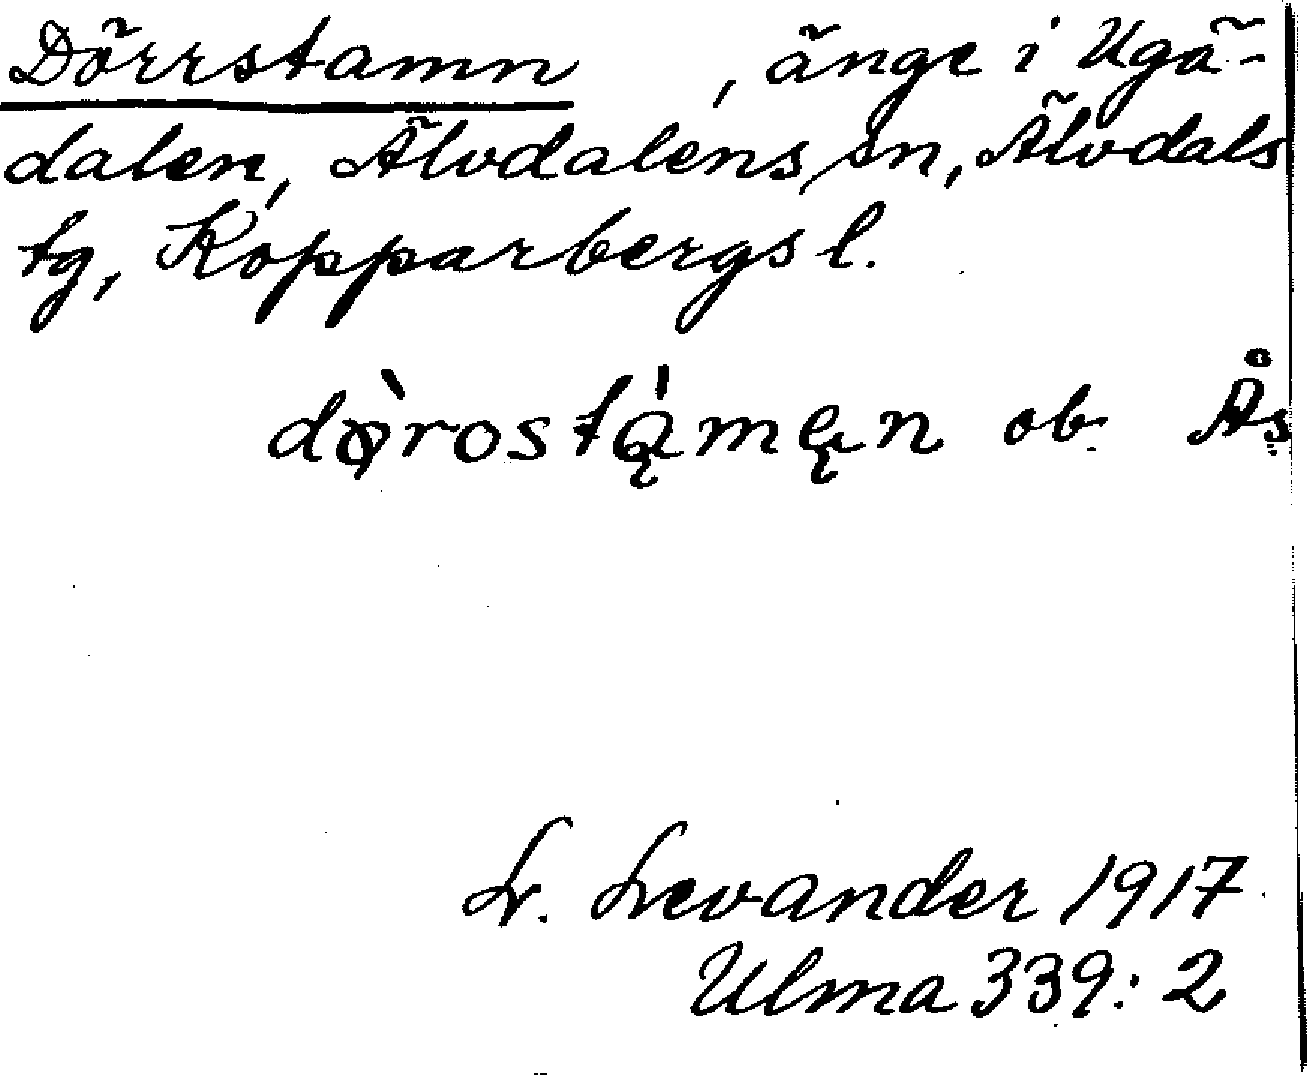 Dörrstamn , änge i Ugä-
dalen, Älvdalens sn, Älvdals
tg, Kopparbergs l.
dø̀rostą́męn ob. Ås
L. Levander 1917
Ulma 339:2